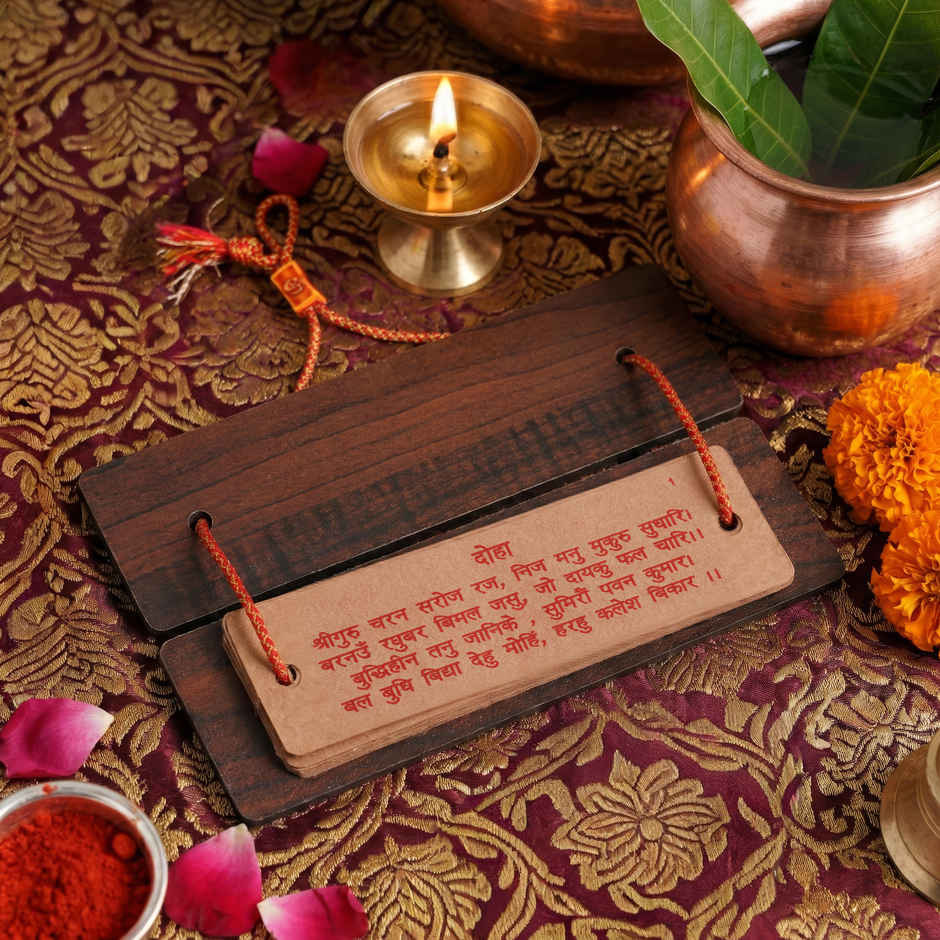 १
दोहा
श्रीगुरु चरन सरोज रज, निज मनु मुकुरु सुधारि।
बरनउँ रघुबर बिमल जसु, जो दायकु फल चारि।।
बुद्धिहीन तनु जानिकै , सुमिरौं पवन कुमार।
बल बुधि बिद्या देहु मोहिं, हरहु कलेश बिकार ।।